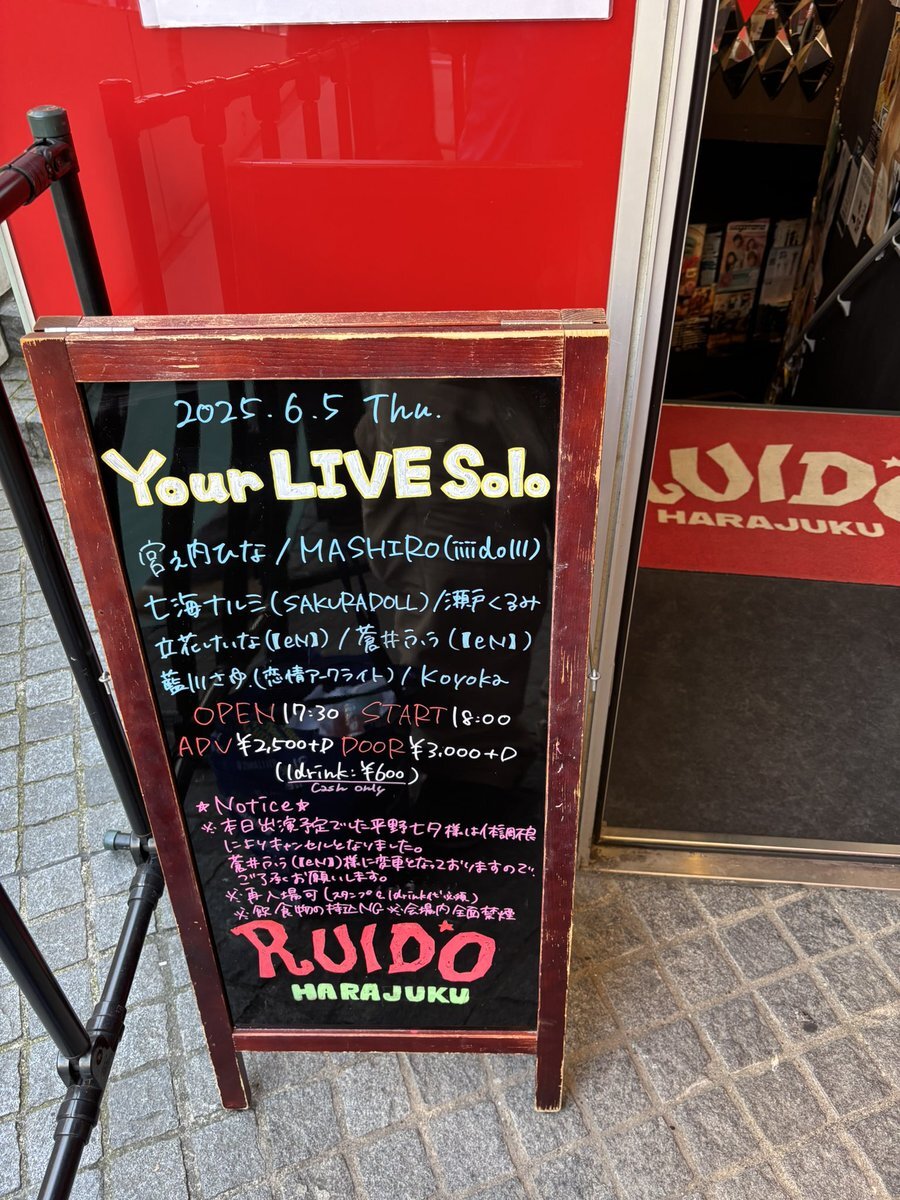 2025.6.5 Thu.
Your LIVE Solo
宮之内ひな / MASHIRO(iiiidolll)
七海ナルミ(SAKURADOLL)/瀬戸くるみ
立花けいな(【eN】) / 蒼井ふう(【eN】)
藍川さゆ.(恋情アークライト) / Koyoka
OPEN 17:30 START 18:00
ADV ¥2,500+D DOOR ¥3,000+D
(1drink:¥600)
Cash only
☆Notice☆
※本日出演予定でした平野七夕様は体調不良
によりキャンセルとなりました。
蒼井ふう(【eN】)様に変更となっておりますので、
ご了承お願いします。
※再入場可(スタンプ&1drink代必須)
※飲食物の持込NG ※会場内全面禁煙
RUIDO
HARAJUKU
RUIDO
HARAJUKU